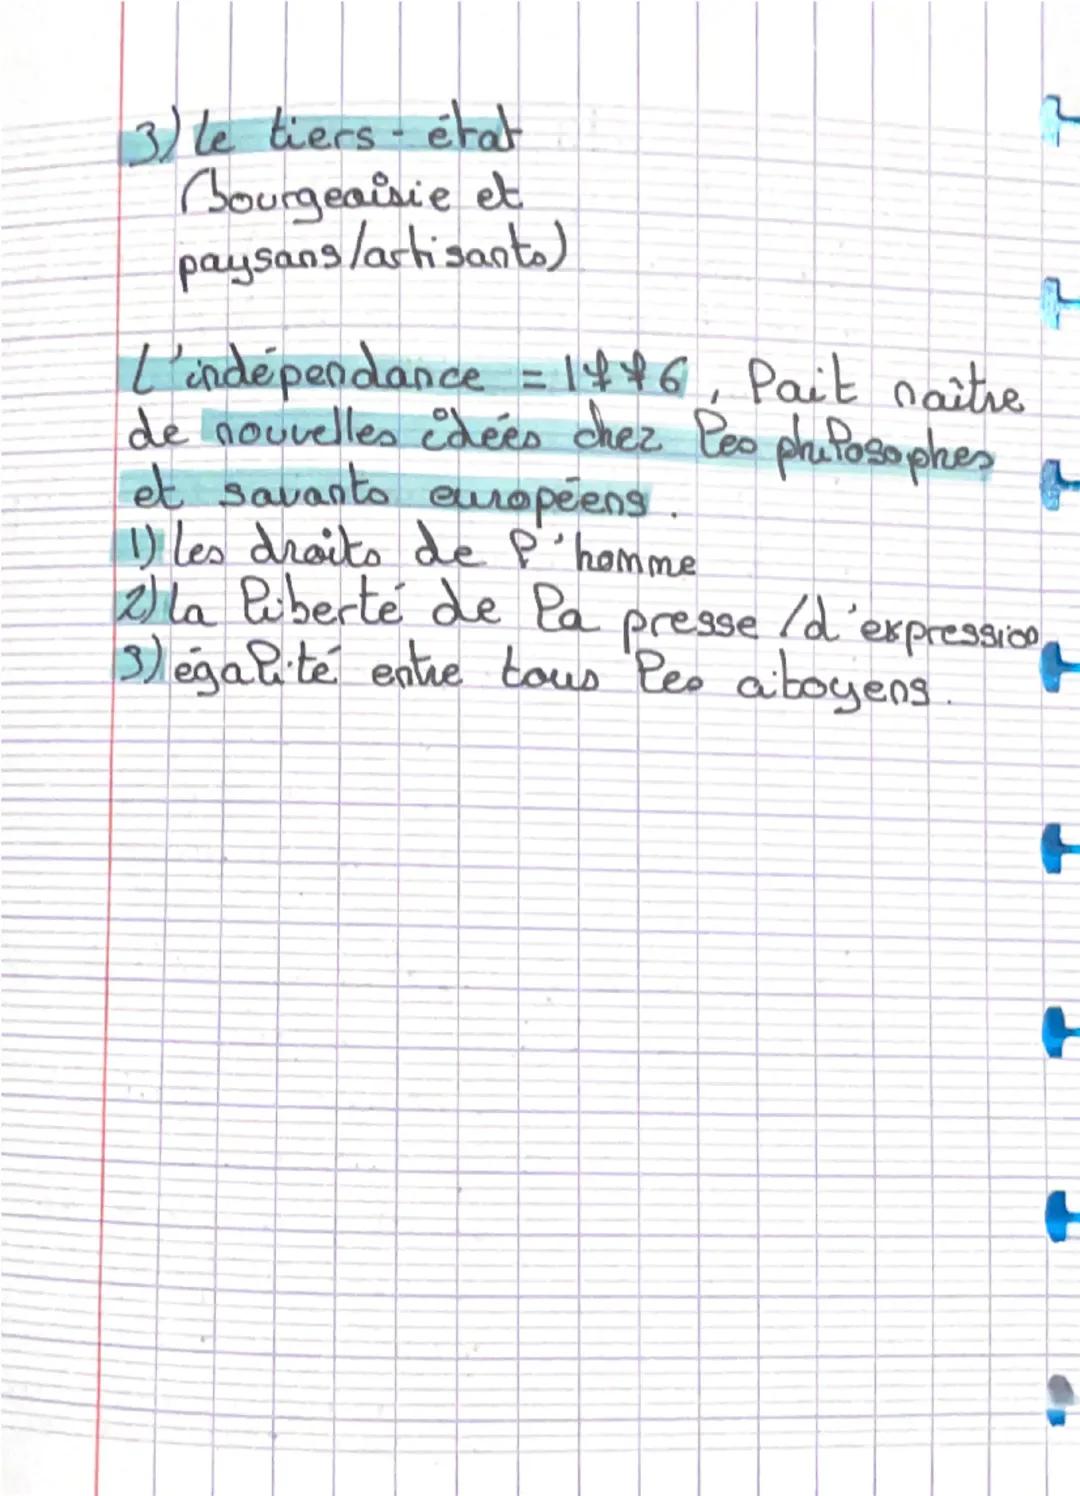 3) le tiers-état
(Bourgeaisie et
paysans/artisants)
L'indépendance = 1776, fait naître
de nouvelles idées chez les philosophes
et savants européens.
1) les droits de l'homme
2) la liberté de la presse /d'expression
3) égalité entre tous les citoyens.